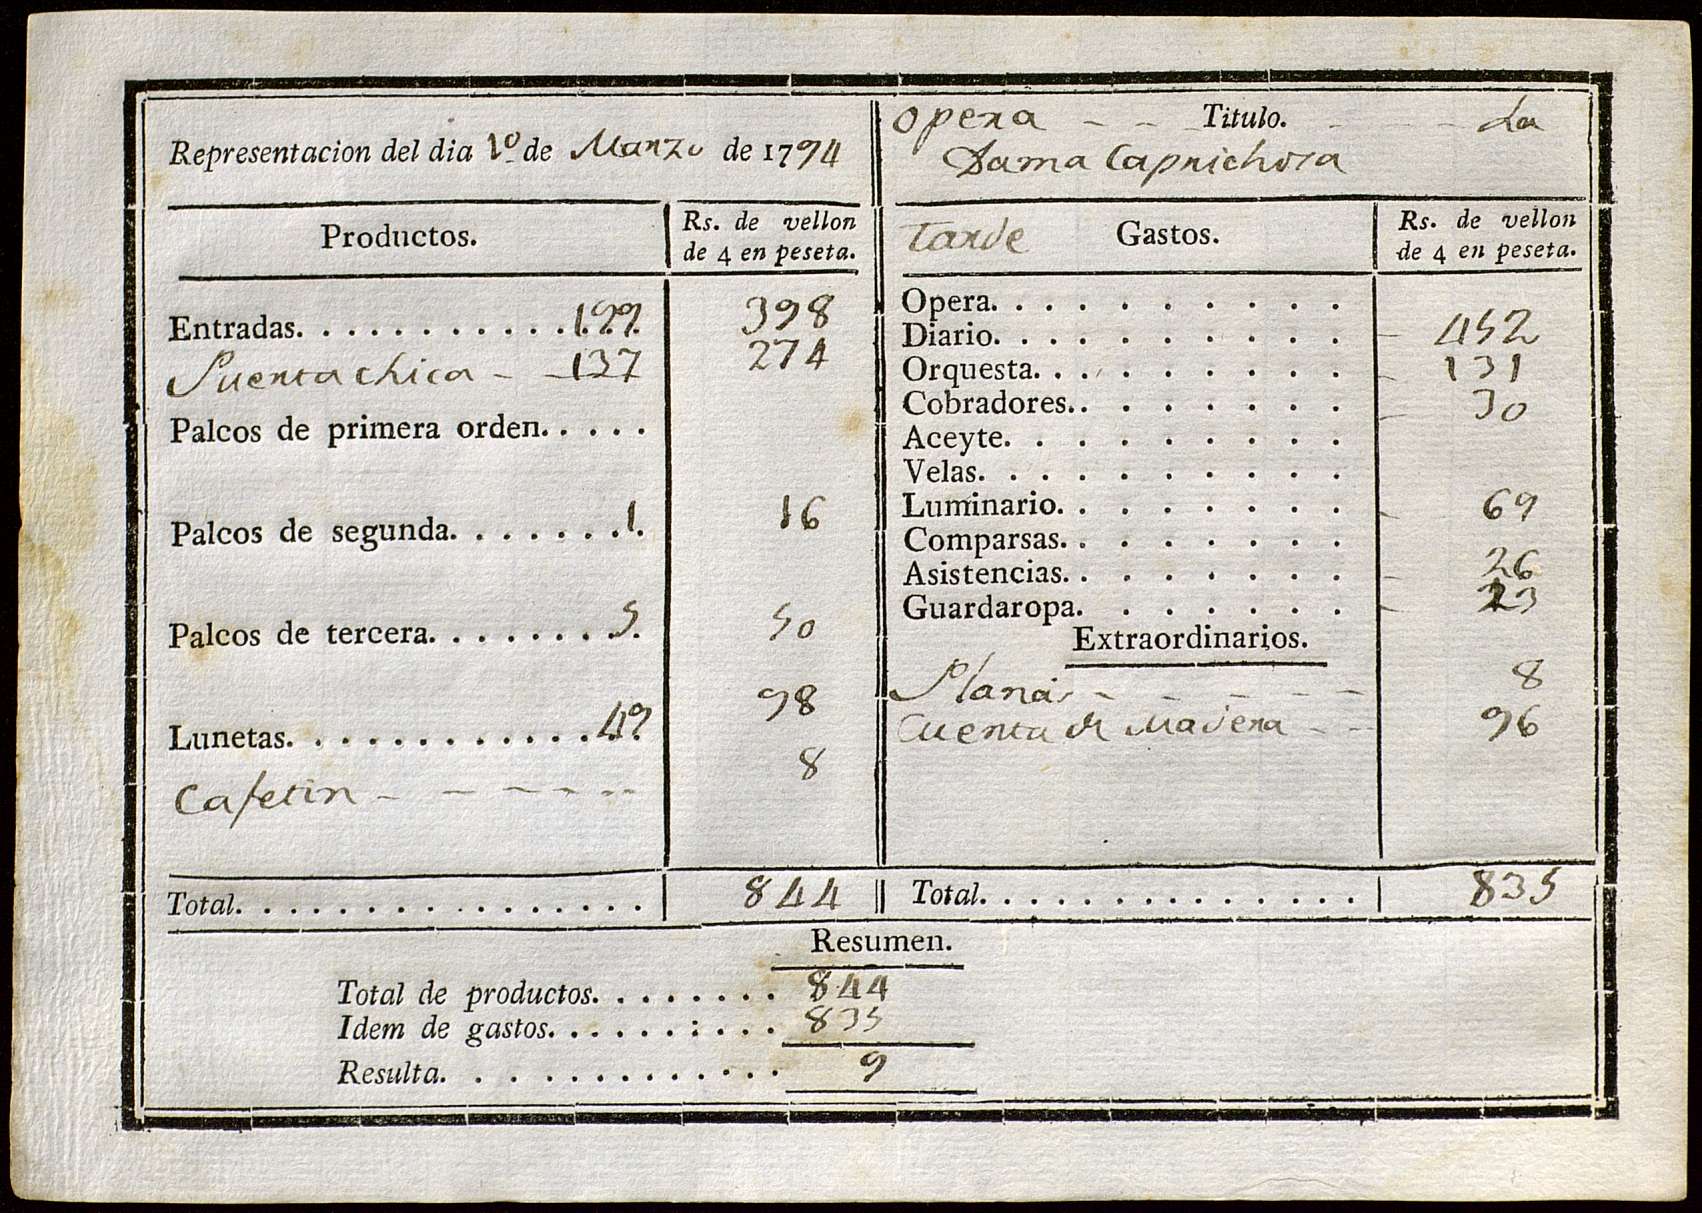 Representacion del dia 1º de Marzo de 1794
Opera - - Titulo. - - La
Dama Caprichosa
Productos. Rs. de vellon de 4 en peseta.
Entradas. . . . . . . . . . . 199. 398
Puerta chica - - 137 274
Palcos de primera orden. . . . .
Palcos de segunda. . . . . . . 1. 16
Palcos de tercera. . . . . . . . 5. 50
Lunetas. . . . . . . . . . . . . 49 98
Cafetin - - - - - - 8
Total. . . . . . . . . . . . . . . . 844
Tarde Gastos. Rs. de vellon de 4 en peseta.
Opera. . . . . . . . . . .
Diario. . . . . . . . . . . - 452
Orquesta. . . . . . . . . . - 131
Cobradores. . . . . . . . - 30
Aceyte. . . . . . . . . .
Velas. . . . . . . . . . .
Luminario. . . . . . . . - 69
Comparsas. . . . . . . .
Asistencias. . . . . . . . - 26
Guardaropa. . . . . . . - 23
Extraordinarios.
Planas - - - - - 8
Cuenta de Madera - - - 96
Total. . . . . . . . . . . . . . . 835
Resumen.
Total de productos. . . . . . . . 844
Idem de gastos. . . . . . . . . . 835
Resulta. . . . . . . . . . . . . 9